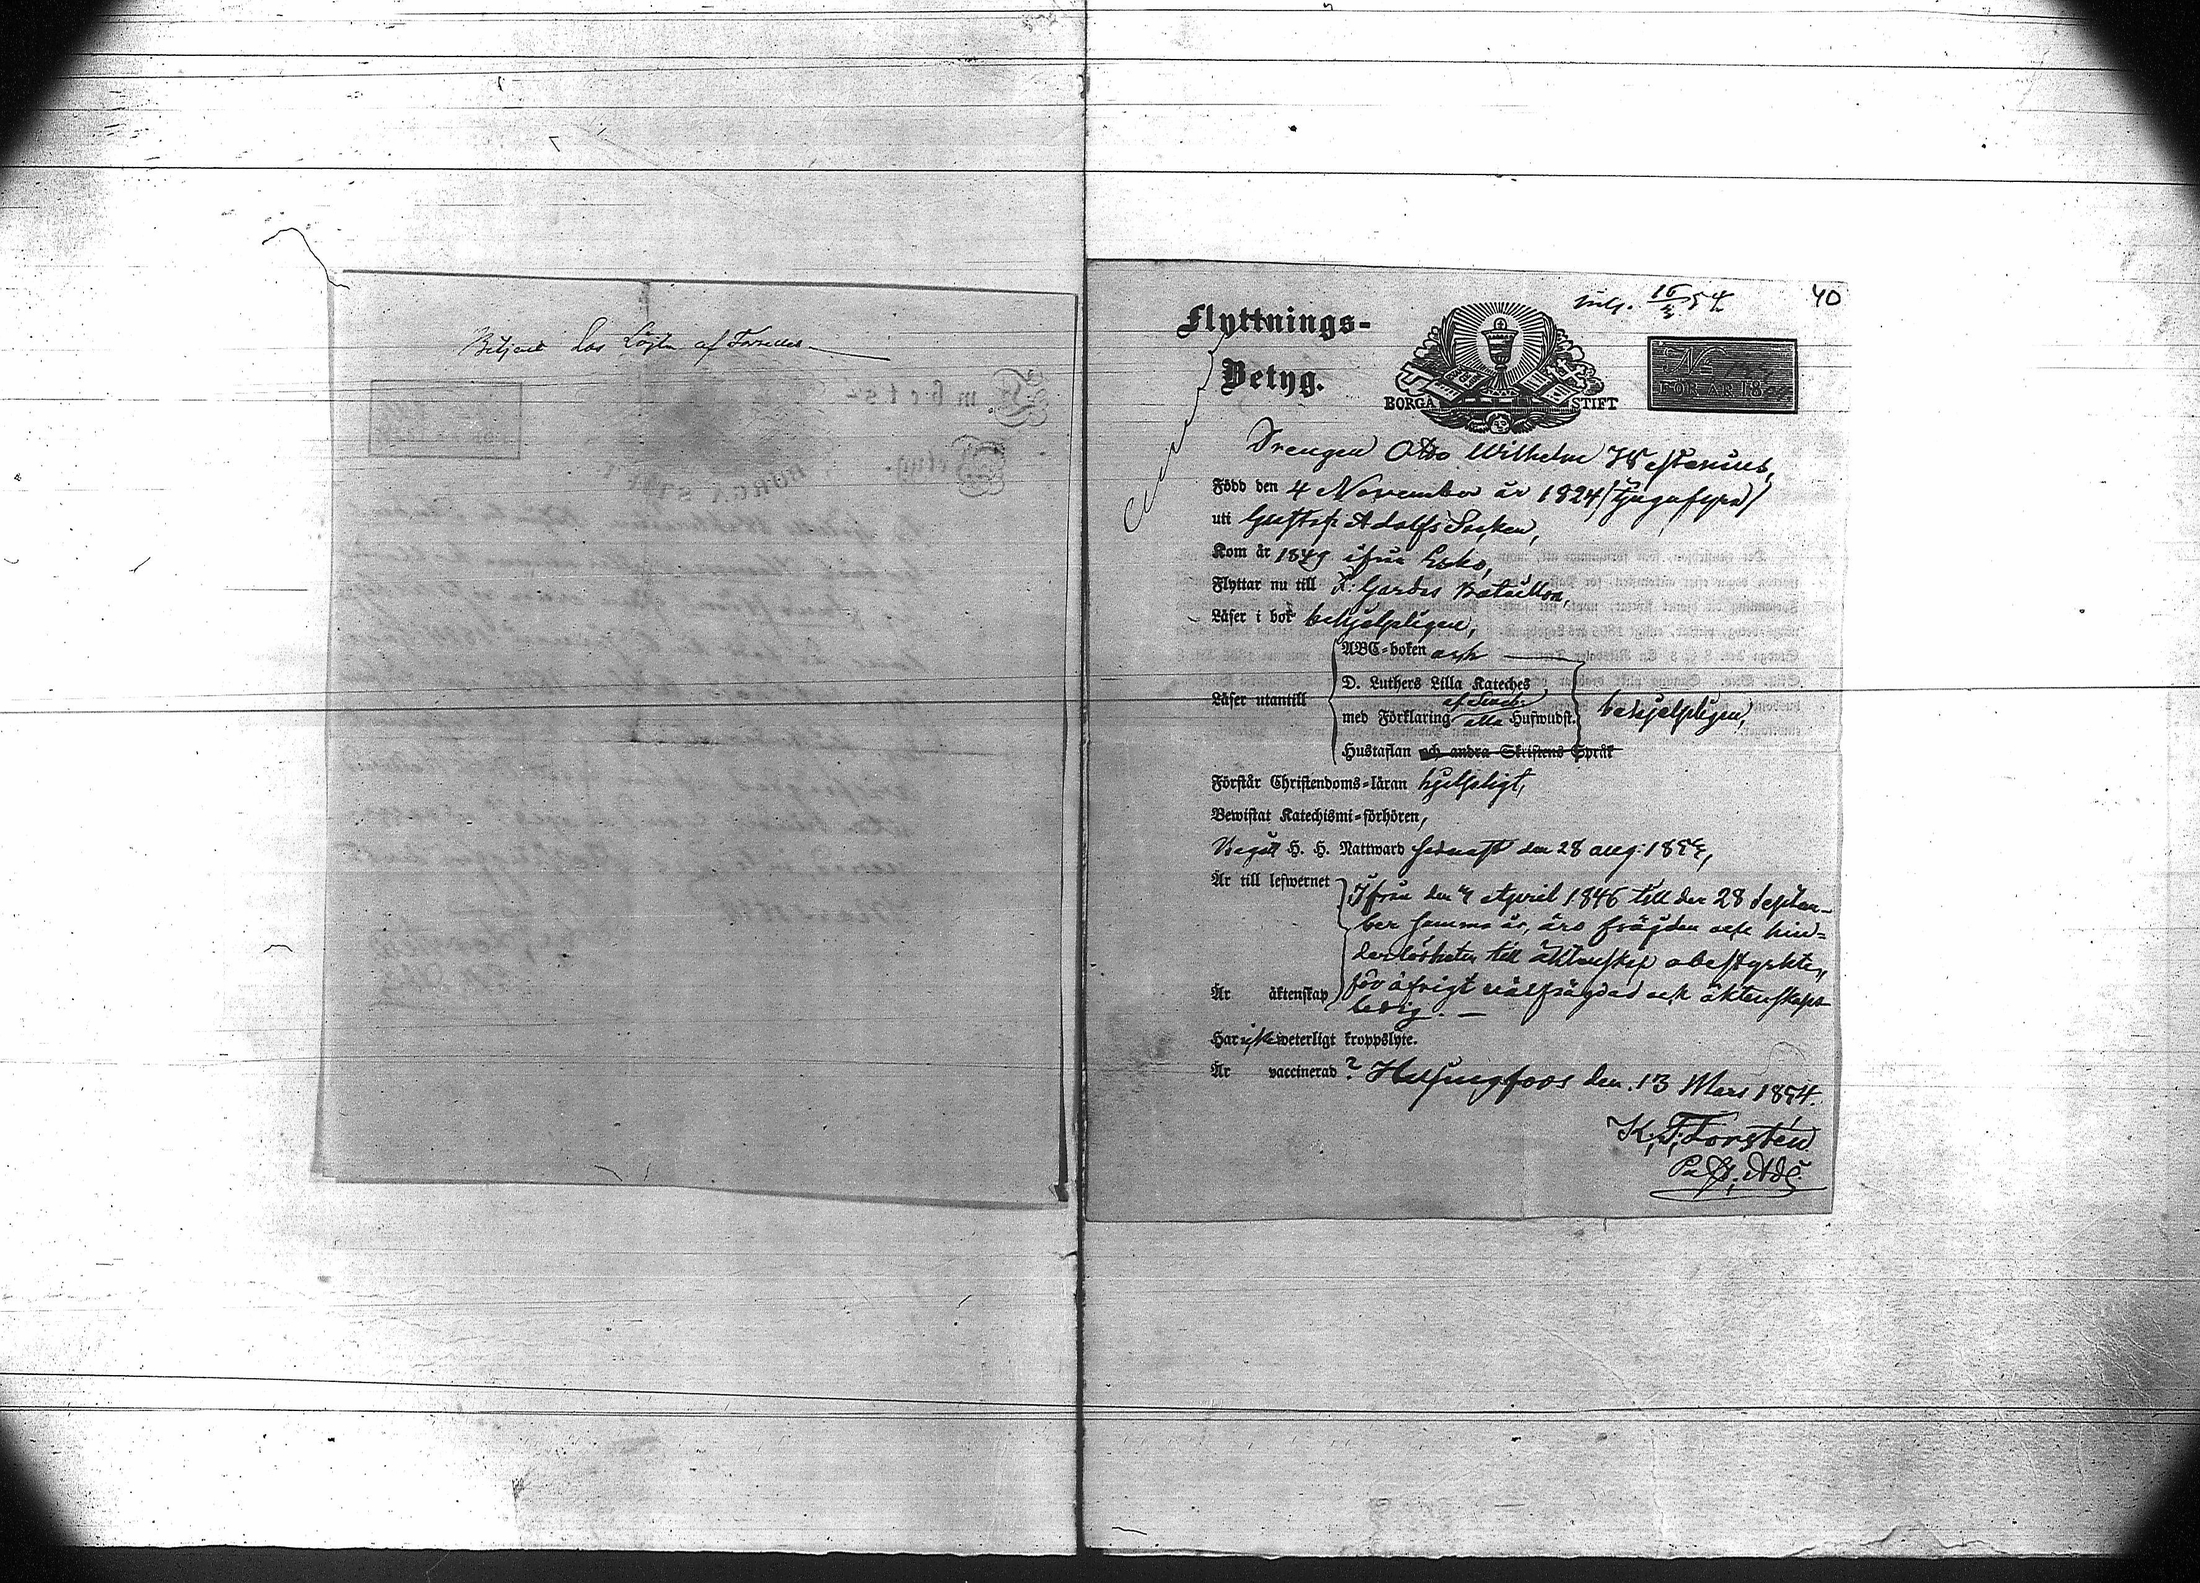 Betjent hos Löjtn af Forselles
40
Flyttnings-
Betyg.
BORGÅ STIFT
N:o
FÖR ÅR 18
Drengen Otto Wilhelm Westerius,
Född den 4 November år 1824 (tjugufyra)
uti Gustaf Adolfs Socken,
Kom år 1849 ifrån Esbo,
Flyttar nu till L: Gardes Bataillon,
Läser i bok behjelpligen,
ABC-boken och
D. Luthers Lilla Kateches
Läser utantill
med Förklaring af Sineb: alla Hufwudst. behjelpligen,
Hustaflan och andra Skriftens Språk
Förstår Christendoms-läran hjelpligt,
Bewistat Katechismi-förhören,
Begått H. H. Nattward sednast den 28 aug: 1853,
Är till lefwernet Ifrån den 4 April 1846 till den 28 Septem-
ber samma år, äro frägden och hin-
derlösheten till äktenskap obestyrkte,
Är äktenskap för öfrigt välfrägdad och äktenskaps
ledig.
Har icke weterligt kroppslyte.
Är vaccinerad? Helsingfors den 13 Mars 1854.
K. F. Forstén
Past. Adj.